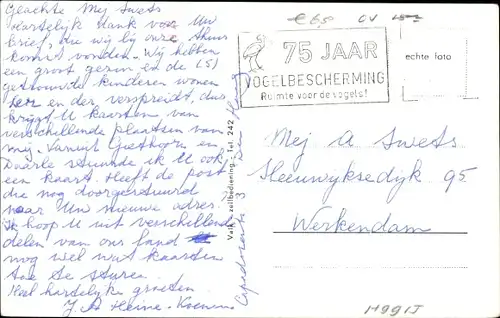 Geachte Mej Swets
Hartelijk dank voor Uw
brief, die wij bij onze thuis
komst vonden. Wij hebben
een groot gezin en de (5)
getrouwde kinderen wonen
her en der, verspreidt, dus
krijgt U kaarten van
verschillende plaatsen van
mij. Vanuit Giethoorn en
Daarle stuurde ik U ook
een kaart. Heeft de post
die nog doorgestuurd
naar Uw nieuwe adres?
Ik hoop U uit verschillende
delen van ons land
nog wel wat kaarten
toe te sturen.
Heel hartelijke groeten
J. A Heine-
Den Haag
3
Valk's zelfbediening - Tel. 242
€ 6,50 OV
75 JAAR
VOGELBESCHERMING
Ruimte voor de vogels!
echte foto
Mej A Swets
Sleeuwijksedijk 95
Werkendam
M991J